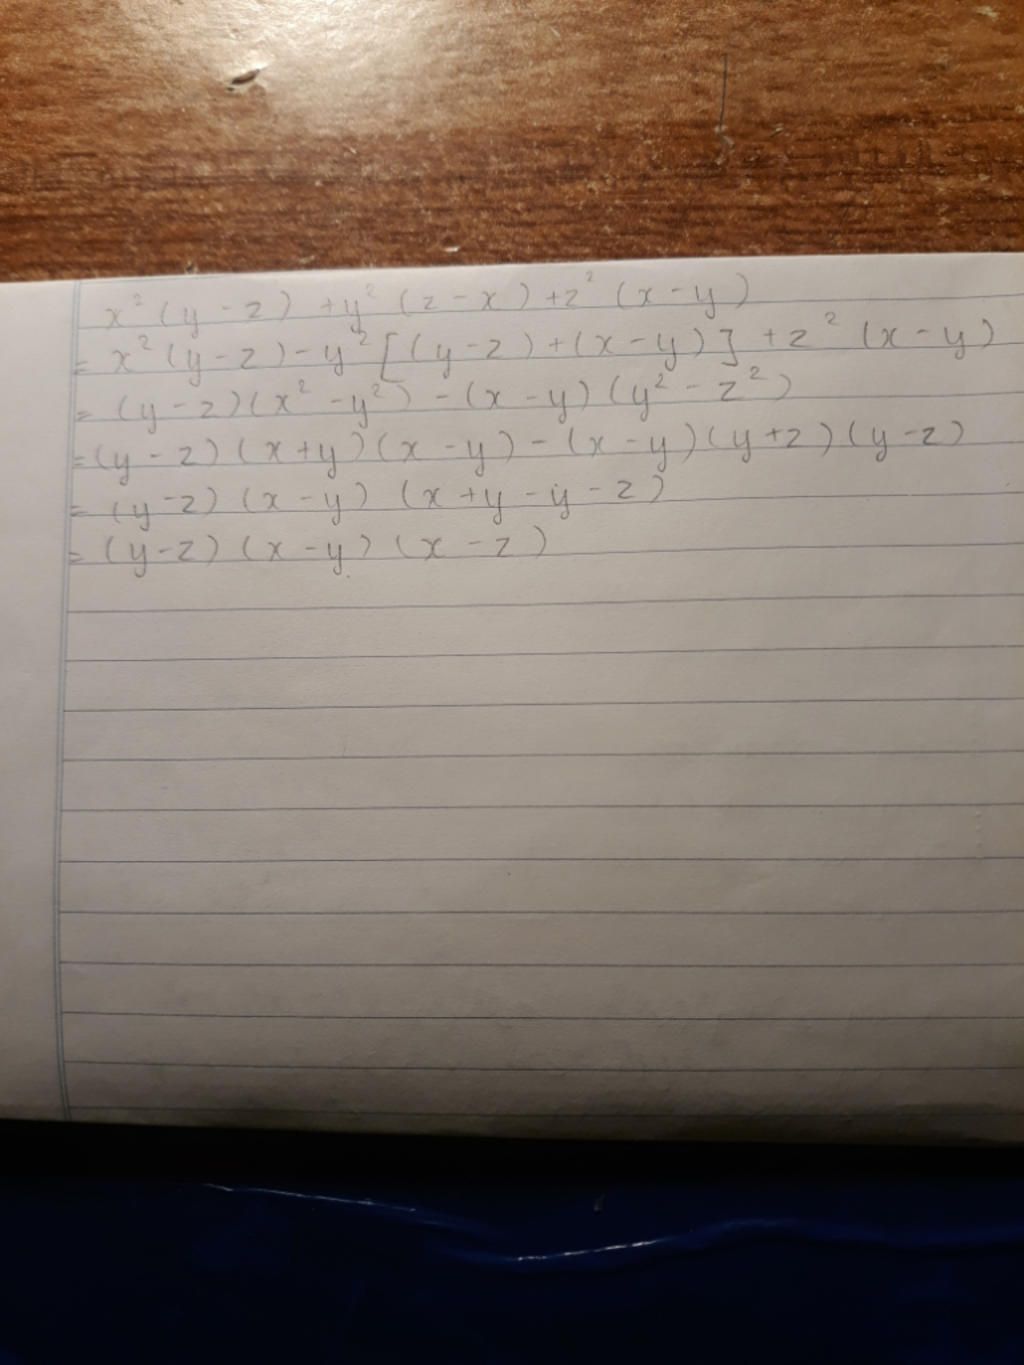 x² (y - z) + y² (z - x) + z² (x - y)
= x² (y - z) - y² [(y - z) + (x - y)] + z² (x - y)
= (y - z) (x² - y²) - (x - y) (y² - z²)
= (y - z) (x + y) (x - y) - (x - y) (y + z) (y - z)
= (y - z) (x - y) (x + y - y - z)
= (y - z) (x - y) (x - z)